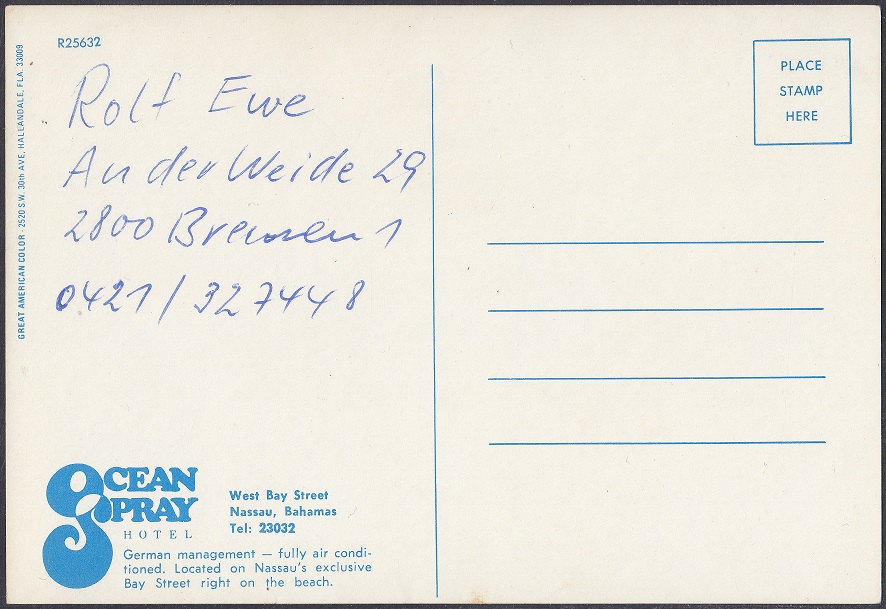 R25632
GREAT AMERICAN COLOR - 2520 S.W. 30th AVE, HALLANDALE, FLA. 33009
Rolf Ewe
An der Weide 29
2800 Bremen 1
0421/327448
OCEAN
SPRAY
HOTEL
West Bay Street
Nassau, Bahamas
Tel: 23032
German management — fully air condi-
tioned. Located on Nassau's exclusive
Bay Street right on the beach.
PLACE
STAMP
HERE